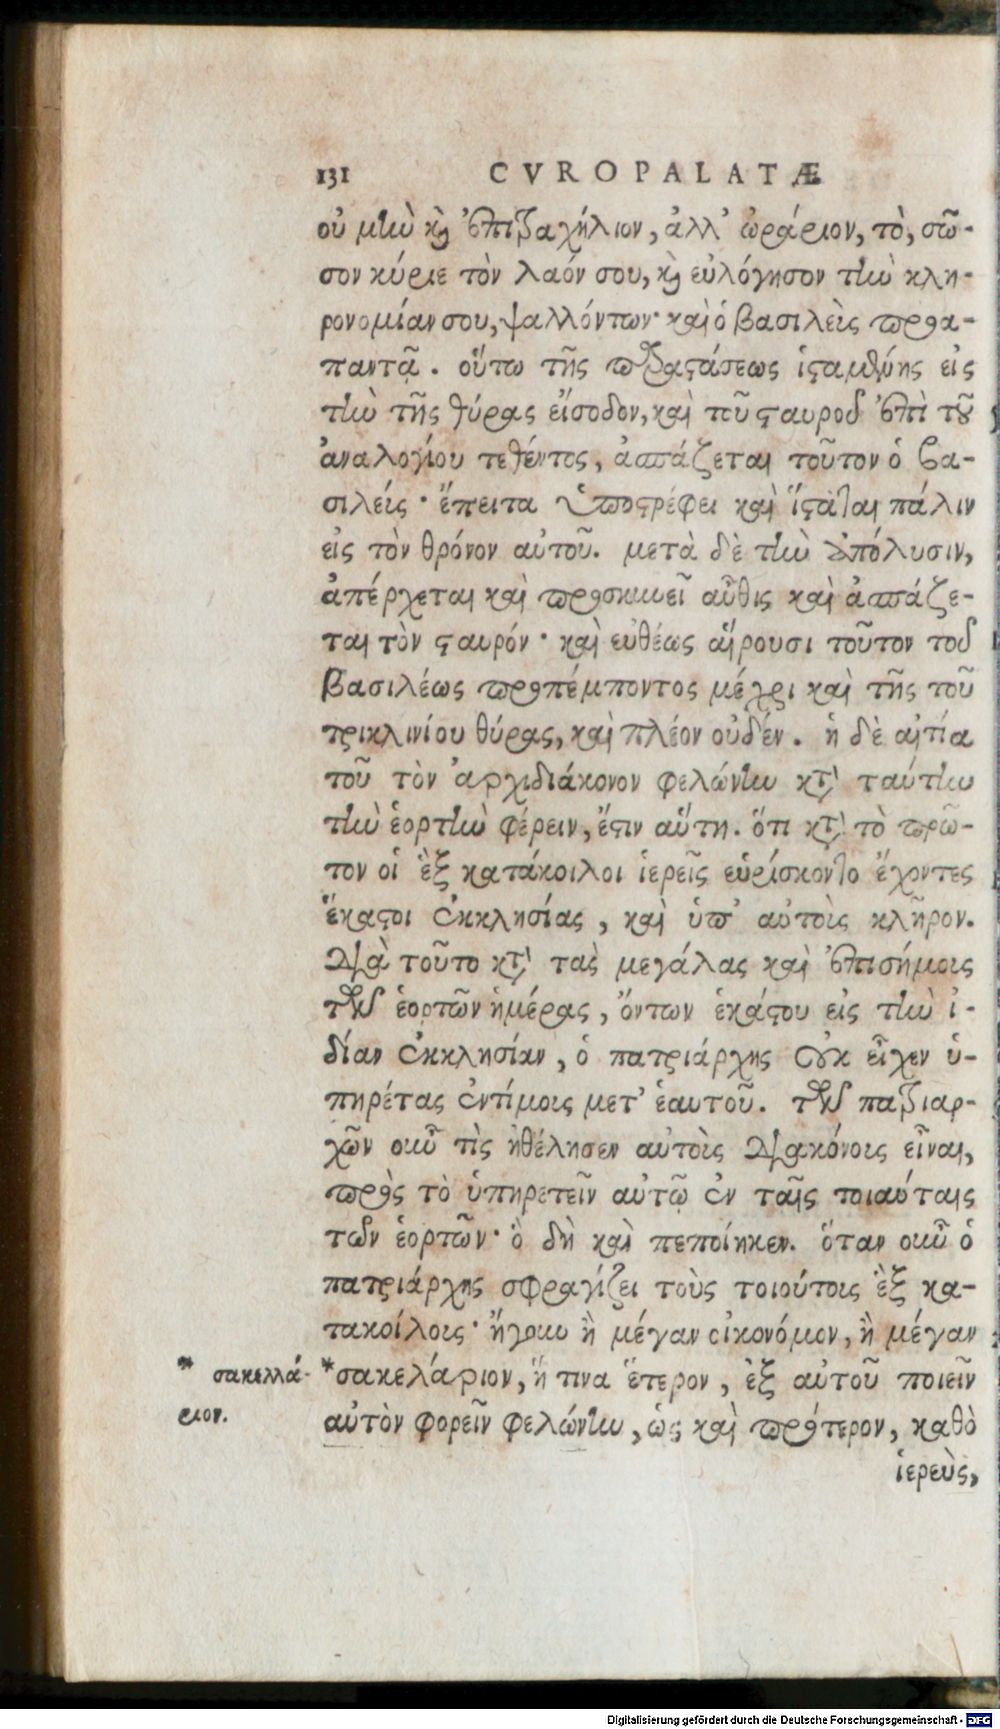 131 CVROPALATÆ
οὐ μὴν καὶ ἐπιτραχήλιον, ἀλλ' ὠράριον, τὸ, σῶ-
σον κύριε τὸν λαόν σου, καὶ εὐλόγησον τὴν κλη-
ρονομίαν σου, ψαλλόντων· καὶ ὁ βασιλεὺς προα-
παντᾷ. οὕτω τῆς παραστάσεως ἱσταμένης εἰς
τὴν τῆς θύρας εἴσοδον, καὶ τοῦ σταυροῦ ἐπὶ τοῦ
ἀναλογίου τεθέντος, ἀσπάζεται τοῦτον ὁ βα-
σιλεύς· ἔπειτα ὑποστρέφει καὶ ἵσταται πάλιν
εἰς τὸν θρόνον αὐτοῦ. μετὰ δὲ τὴν ἀπόλυσιν,
ἀπέρχεται καὶ προσκυνεῖ αὖθις καὶ ἀσπάζε-
ται τὸν σταυρόν· καὶ εὐθέως αἴρουσι τοῦτον τοῦ
βασιλέως προπέμποντος μέχρι καὶ τῆς τοῦ
τρικλινίου θύρας, καὶ πλέον οὐδέν. ἡ δὲ αἰτία
τοῦ τὸν ἀρχιδιάκονον φελώνην κατὰ ταύτην
τὴν ἑορτὴν φέρειν, ἔστιν αὕτη. ὅτι κατὰ τὸ πρῶ-
τον οἱ ἓξ κατάκοιλοι ἱερεῖς εὑρίσκοντο ἔχοντες
ἕκαστοι ἐκκλησίας, καὶ ὑπ' αὐτοὺς κλῆρον.
διὰ τοῦτο κατὰ τὰς μεγάλας καὶ ἐπισήμους
τῶν ἑορτῶν ἡμέρας, ὄντων ἑκάστου εἰς τὴν ἰ-
δίαν ἐκκλησίαν, ὁ πατριάρχης οὐκ εἶχεν ὑ-
πηρέτας ἐντίμους μετ' ἑαυτοῦ. τῶν πατριαρ-
χῶν οὖν τὶς ἠθέλησεν αὐτοὺς διακόνους εἶναι,
πρὸς τὸ ὑπηρετεῖν αὐτῷ ἐν ταῖς τοιαύταις
τῶν ἑορτῶν· ὃ δὴ καὶ πεποίηκεν. ὅταν οὖν ὁ
πατριάρχης σφραγίζει τοὺς τοιούτους ἓξ κα-
τακοίλους· ἤγουν ἢ μέγαν οἰκονόμον, ἢ μέγαν
*σακελάριον, ἤ τινα ἕτερον, ἐξ αὐτοῦ ποιεῖν
αὐτὸν φορεῖν φελώνην, ὡς καὶ πρότερον, καθὸ
ἱερεὺς,
* σακελλά-
ριον.
Digitalisierung gefördert durch die Deutsche Forschungsgemeinschaft - DFG